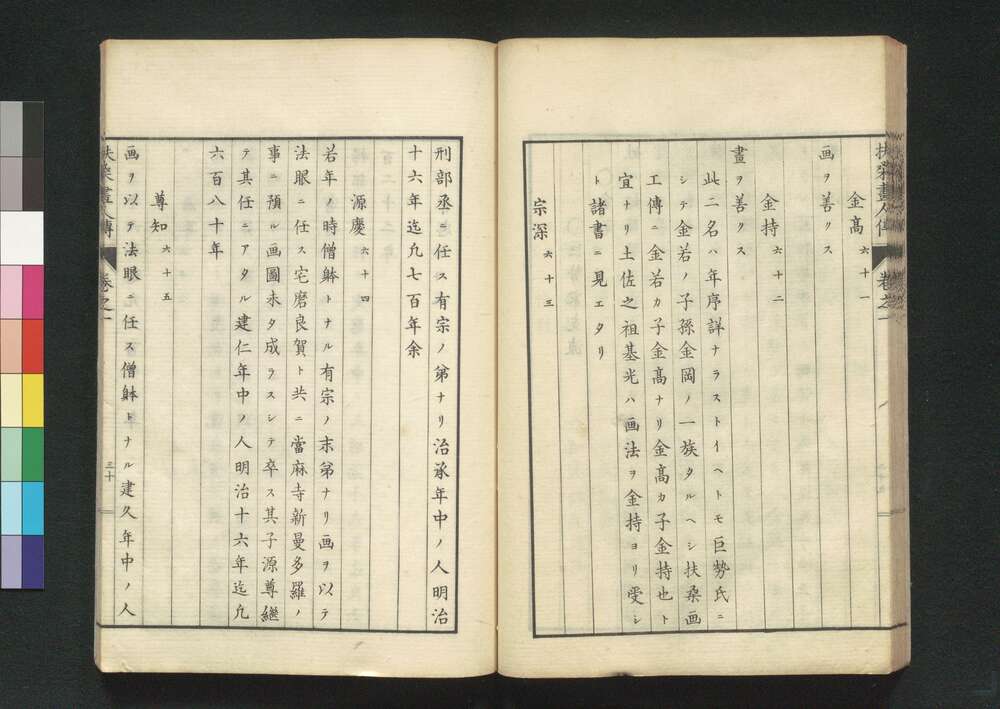 扶桑畫人傳
卷之一
金高 六十一
画ヲ善クス
金持 六十二
畫ヲ善クス
此二名ハ年序詳ナラストイヘトモ巨勢氏ニ
シテ金若ノ子孫金岡ノ一族タルヘシ扶桑画
工傳ニ金若カ子金高ナリ金高カ子金持也ト
宜ナリ土佐之祖基光ハ画法ヲ金持ヨリ受シ
ト諸書ニ見エタリ
宗深 六十三
刑部丞ニ任ス有宗ノ第ナリ治承年中ノ人明治
十六年迄凢七百年余
源慶 六十四
若年ノ時僧躰トナル有宗ノ末第ナリ画ヲ以テ
法眼ニ任ス宅磨良賀ト共ニ當麻寺新曼多羅ノ
事ニ預ル画圖未タ成ラスシテ卒ス其子源尊継
テ其任ニアタル建仁年中ノ人明治十六年迄凢
六百八十年
尊知 六十五
画ヲ以テ法眼ニ任ス僧躰トナル建久年中ノ人
扶桑畫人傳
卷之一
三十